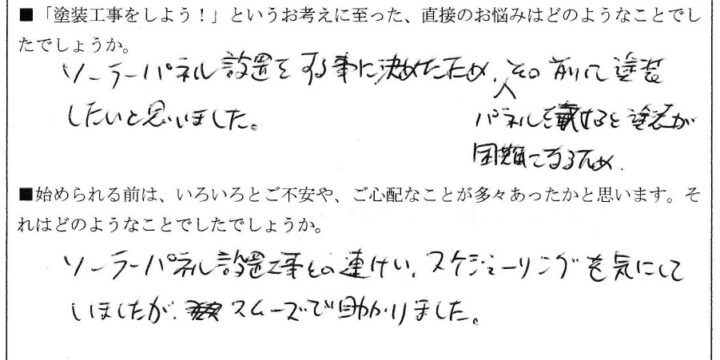 ■「塗装工事をしよう！」というお考えに至った、直接のお悩みはどのようなことでし
たでしょうか。
ソーラーパネル設置をする事に決めたため、その前に塗装
したいと思いました。
パネルを載せると塗装が
困難になるため.
■始められる前は、いろいろとご不安や、ご心配なことが多々あったかと思います。そ
れはどのようなことでしたでしょうか。
ソーラーパネル設置工事との連けい、スケジューリングを気にして
いましたが、スムーズで助かりました。